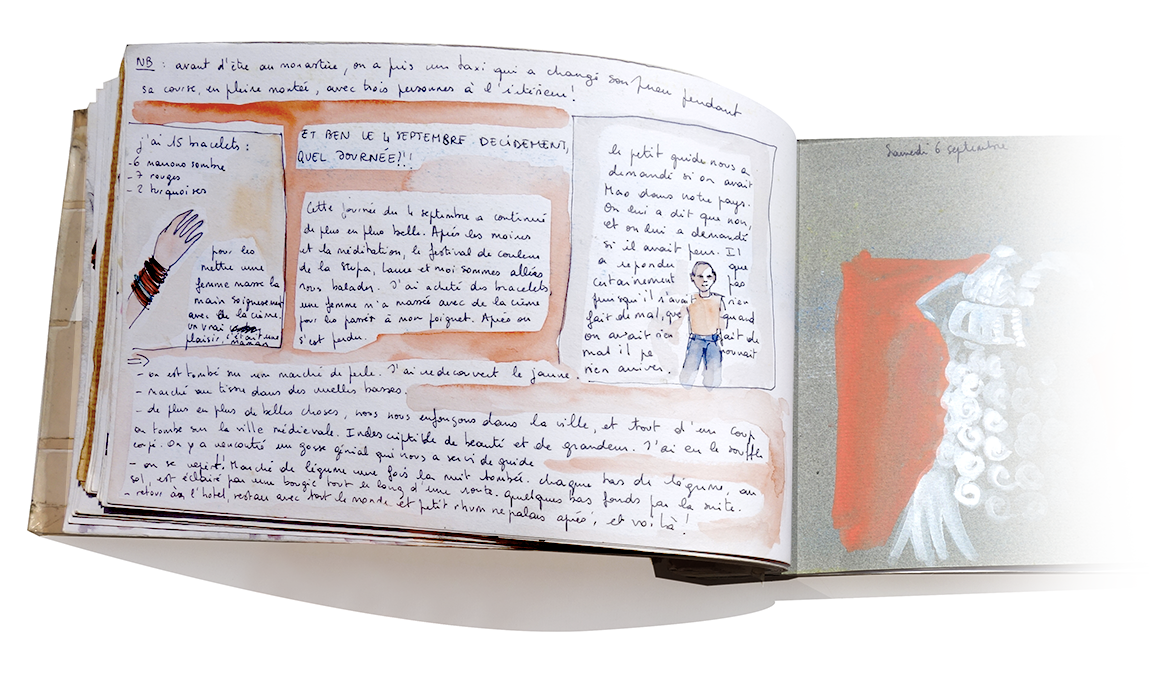 NB : avant d'être au monastère, on a pris un taxi qui a changé son pneu pendant
sa course, en pleine montée, avec trois personnes à l'intérieur !
j'ai 15 bracelets :
- 6 marrons sombre
- 7 rouges
- 2 turquoises
pour les
mettre une
femme masse la
main soigneusement
avec de la crème.
un vrai
plaisir, c'était une
maman
ET BEN LE 4 SEPTEMBRE DECIDEMENT,
QUEL JOURNEE!!!
Cette journée du 4 septembre a continué
de plus en plus belle. Après les moines
et la méditation, le festival de couleurs
de la stupa, Laure et moi sommes allées
nous balader. J'ai acheté des bracelets
une femme m'a massée avec de la crème
pour les passer à mon poignet. Après on
s'est perdu.
le petit guide nous a
demandé si on avait
Mao dans notre pays.
On lui a dit que non,
et on lui a demandé
si il avait peur. Il
a repondu que
certainement pas
puisqu'il n'avait rien
fait de mal, que quand
on avait rien fait de
mal il ne pouvait
rien arriver.
⇒
- on est tombé sur un marché de perle. J'ai redecouvert le jaune.
- marché au tissu dans des ruelles basses.
- de plus en plus de belles choses, nous nous enfonçons dans la ville, et tout d'un coup,
on tombe sur la ville médievale. Indescriptible de beauté et de grandeur. J'ai eu le souffle
coupé. On y a rencontré un gosse génial qui nous a servi de guide
- on se repert! Marché de légume une fois la nuit tombée. chaque tas de légume, au
sol, est éclairé par une bougie tout le long d'une route. quelques bas fonds par la suite.
- retour à l'hotel, restau avec tout le monde, et petit rhum nepalais après, et voilà !
Samedi 6 septembre